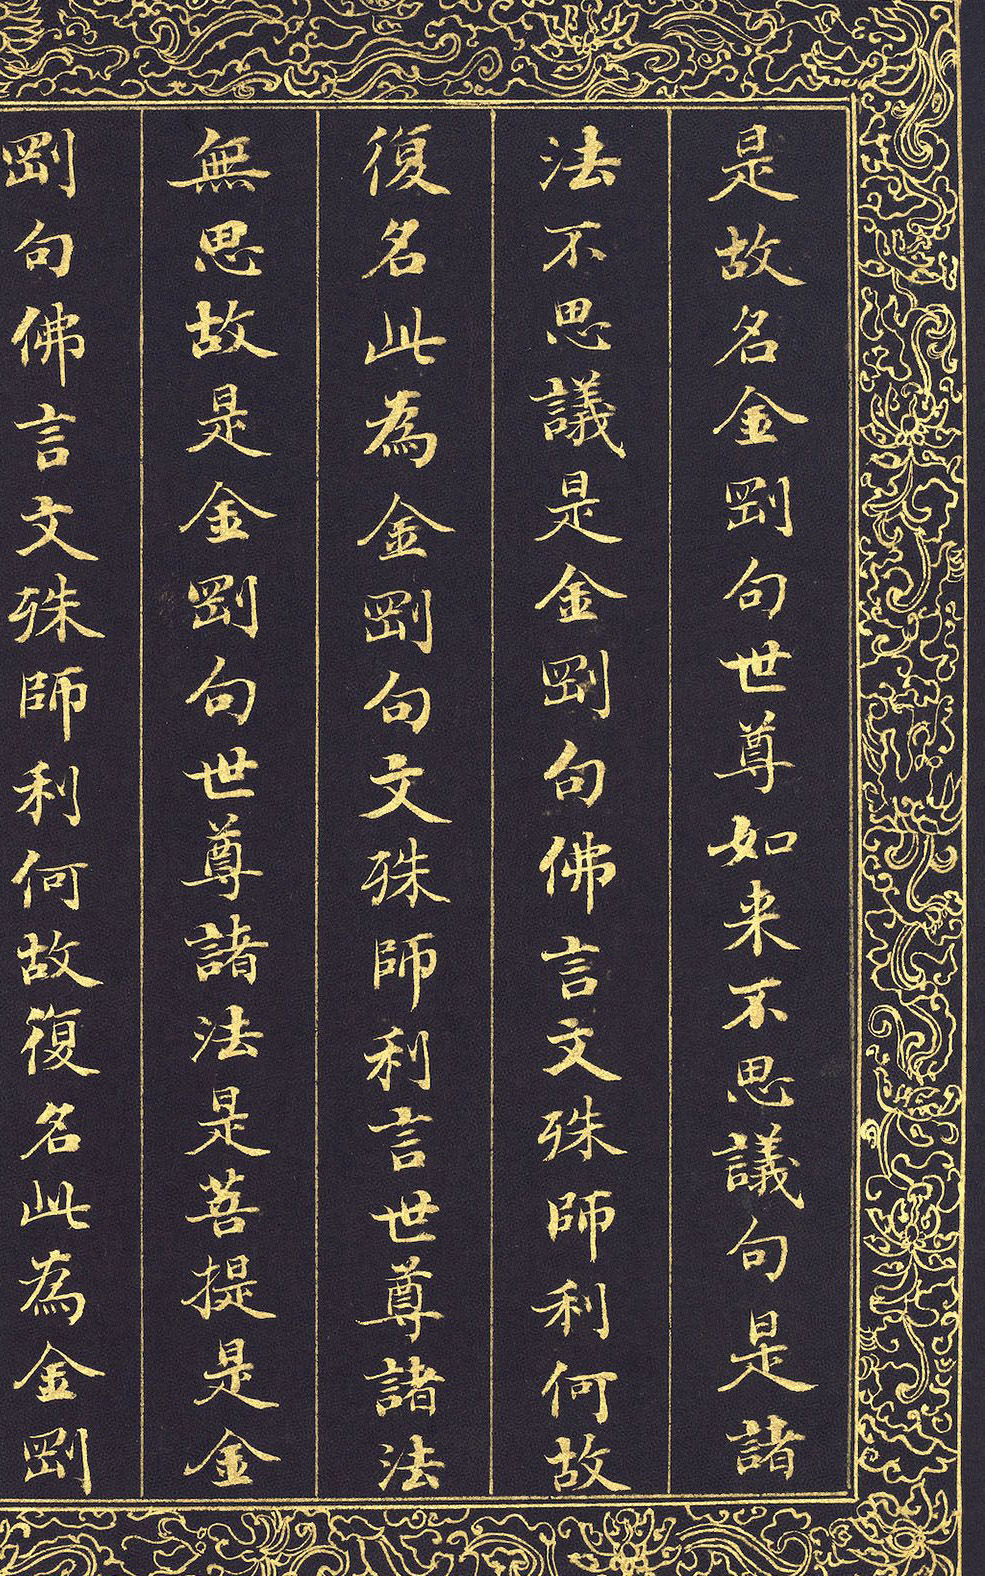 是故名金剛句世尊如来不思議句是諸
法不思議是金剛句佛言文殊師利何故
復名此為金剛句文殊師利言世尊諸法
無思故是金剛句世尊諸法是菩提是金
剛句佛言文殊師利何故復名此為金剛